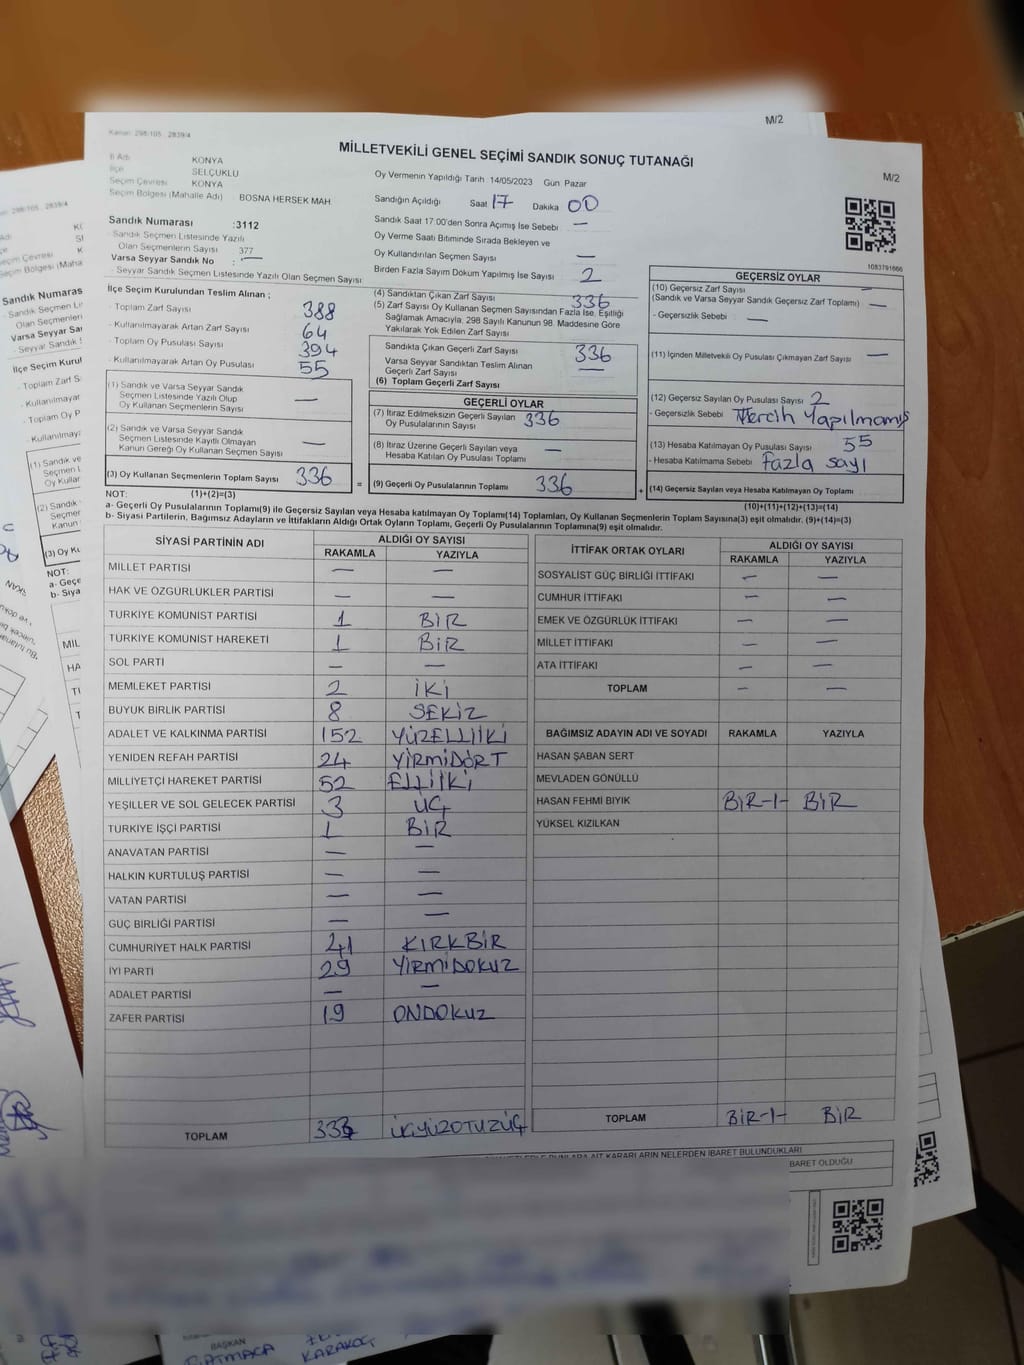 M/2
Kanun: 298/105 , 2839/4
MİLLETVEKİLİ GENEL SEÇİMİ SANDIK SONUÇ TUTANAĞI
M/2
İl Adı KONYA
İlçe SELÇUKLU
Seçim Çevresi KONYA
Seçim Bölgesi (Mahalle Adı) BOSNA HERSEK MAH.
Oy Vermenin Yapıldığı Tarih 14/05/2023 Gün Pazar
Sandığın Açıldığı Saat 17 Dakika 00
Sandık Saat 17.00'den Sonra Açılmış İse Sebebi —
Oy Verme Saati Bitiminde Sırada Bekleyen ve
Oy Kullandırılan Seçmen Sayısı —
Birden Fazla Sayım Döküm Yapılmış İse Sayısı 2
Sandık Numarası :3112
- Sandık Seçmen Listesinde Yazılı
Olan Seçmenlerin Sayısı 377
Varsa Seyyar Sandık No : —
- Seyyar Sandık Seçmen Listesinde Yazılı Olan Seçmen Sayısı
1083791666
İlçe Seçim Kurulundan Teslim Alınan ;
- Toplam Zarf Sayısı 388
- Kullanılmayarak Artan Zarf Sayısı 64
- Toplam Oy Pusulası Sayısı 394
- Kullanılmayarak Artan Oy Pusulası 55
(1) Sandık ve Varsa Seyyar Sandık
Seçmen Listesinde Yazılı Olup
Oy Kullanan Seçmenlerin Sayısı —
(2) Sandık ve Varsa Seyyar Sandık
Seçmen Listesinde Kayıtlı Olmayan
Kanun Gereği Oy Kullanan Seçmen Sayısı —
(3) Oy Kullanan Seçmenlerin Toplam Sayısı 336
(4) Sandıktan Çıkan Zarf Sayısı 336
(5) Zarf Sayısı Oy Kullanan Seçmen Sayısından Fazla İse, Eşitliği
Sağlamak Amacıyla, 298 Sayılı Kanunun 98. Maddesine Göre
Yakılarak Yok Edilen Zarf Sayısı
Sandıkta Çıkan Geçerli Zarf Sayısı 336
Varsa Seyyar Sandıktan Teslim Alınan
Geçerli Zarf Sayısı —
(6) Toplam Geçerli Zarf Sayısı
GEÇERLİ OYLAR
(7) İtiraz Edilmeksizin Geçerli Sayılan
Oy Pusulalarının Sayısı 336
(8) İtiraz Üzerine Geçerli Sayılan veya
Hesaba Katılan Oy Pusulası Toplamı —
= (9) Geçerli Oy Pusulalarının Toplamı 336
GEÇERSİZ OYLAR
(10) Geçersiz Zarf Sayısı —
(Sandık ve Varsa Seyyar Sandık Geçersiz Zarf Toplamı) —
- Geçersizlik Sebebi —
(11) İçinden Milletvekili Oy Pusulası Çıkmayan Zarf Sayısı —
(12) Geçersiz Sayılan Oy Pusulası Sayısı 2
- Geçersizlik Sebebi Tercih Yapılmamış
(13) Hesaba Katılmayan Oy Pusulası Sayısı 55
- Hesaba Katılmama Sebebi Fazla sayı
+ (14) Geçersiz Sayılan veya Hesaba Katılmayan Oy Toplamı
NOT: (1)+(2)=(3) (10)+(11)+(12)+(13)=(14)
a- Geçerli Oy Pusulalarının Toplamı(9) ile Geçersiz Sayılan veya Hesaba katılmayan Oy Toplamı(14) Toplamları, Oy Kullanan Seçmenlerin Toplam Sayısına(3) eşit olmalıdır. (9)+(14)=(3)
b- Siyasi Partilerin, Bağımsız Adayların ve İttifakların Aldığı Ortak Oyların Toplamı, Geçerli Oy Pusulalarının Toplamına(9) eşit olmalıdır.
SİYASİ PARTİNİN ADI ALDIĞI OY SAYISI
RAKAMLA YAZIYLA
MİLLET PARTİSİ — —
HAK VE ÖZGÜRLÜKLER PARTİSİ — —
TÜRKİYE KOMÜNİST PARTİSİ 1 BİR
TÜRKİYE KOMÜNİST HAREKETİ 1 BİR
SOL PARTİ — —
MEMLEKET PARTİSİ 2 İKİ
BÜYÜK BİRLİK PARTİSİ 8 SEKİZ
ADALET VE KALKINMA PARTİSİ 152 YÜZELLİİKİ
YENİDEN REFAH PARTİSİ 24 YİRMİDÖRT
MİLLİYETÇİ HAREKET PARTİSİ 52 ELLİİKİ
YEŞİLLER VE SOL GELECEK PARTİSİ 3 ÜÇ
TÜRKİYE İŞÇİ PARTİSİ 1 BİR
ANAVATAN PARTİSİ — —
HALKIN KURTULUŞ PARTİSİ — —
VATAN PARTİSİ — —
GÜÇ BİRLİĞİ PARTİSİ — —
CUMHURİYET HALK PARTİSİ 41 KIRKBİR
İYİ PARTİ 29 YİRMİDOKUZ
ADALET PARTİSİ — —
ZAFER PARTİSİ 19 ONDOKUZ
TOPLAM ÜÇYÜZOTUZÜÇ
İTTİFAK ORTAK OYLARI ALDIĞI OY SAYISI
RAKAMLA YAZIYLA
SOSYALİST GÜÇ BİRLİĞİ İTTİFAKI — —
CUMHUR İTTİFAKI — —
EMEK VE ÖZGÜRLÜK İTTİFAKI — —
MİLLET İTTİFAKI — —
ATA İTTİFAKI — —
TOPLAM — —
BAĞIMSIZ ADAYIN ADI VE SOYADI RAKAMLA YAZIYLA
HASAN ŞABAN SERT
MEVLADEN GÖNÜLLÜ
HASAN FEHMİ BIYIK BİR-1- BİR
YÜKSEL KIZILKAN
TOPLAM BİR-1- BİR
BARET OLDUĞU
BAŞKAN
KARAKOÇ